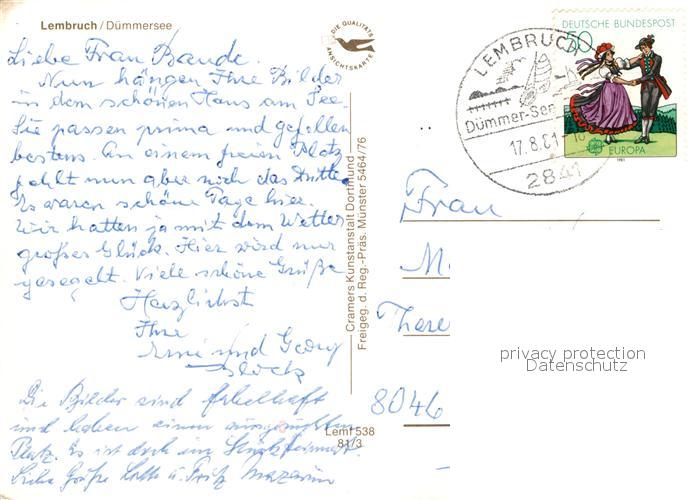 Lembruch / Dümmersee
DIE QUALITÄTS
ANSICHTSKARTE
Liebe Frau Bande.
Nun hängen Ihre Bilder
in dem schönen Haus am See.
Sie passen prima und gefallen
bestens. An einem freien Platz
fehlt nun aber noch das Dritte
Es waren schöne Tage hier.
Wir hatten ja mit dem Wetter
großes Glück. Hier wird nur
gesegelt. Viele schöne Grüße
Herzlichst
Ihre
und Georg
Die Bilder sind fabelhaft
und haben einen
Platz. Es ist doch ein
Liebe Grüße Lotte u. Fritz
Cramers Kunstanstalt Dortmund
Freigeg. d. Reg.-Präs. Münster 5464/76
Lemf 538
81/3
LEMBRUCH
Dümmer-See
17.8.81-16
2841
DEUTSCHE BUNDESPOST
50
EUROPA
1981
Frau
M
There
8046
privacy protection
Datenschutz